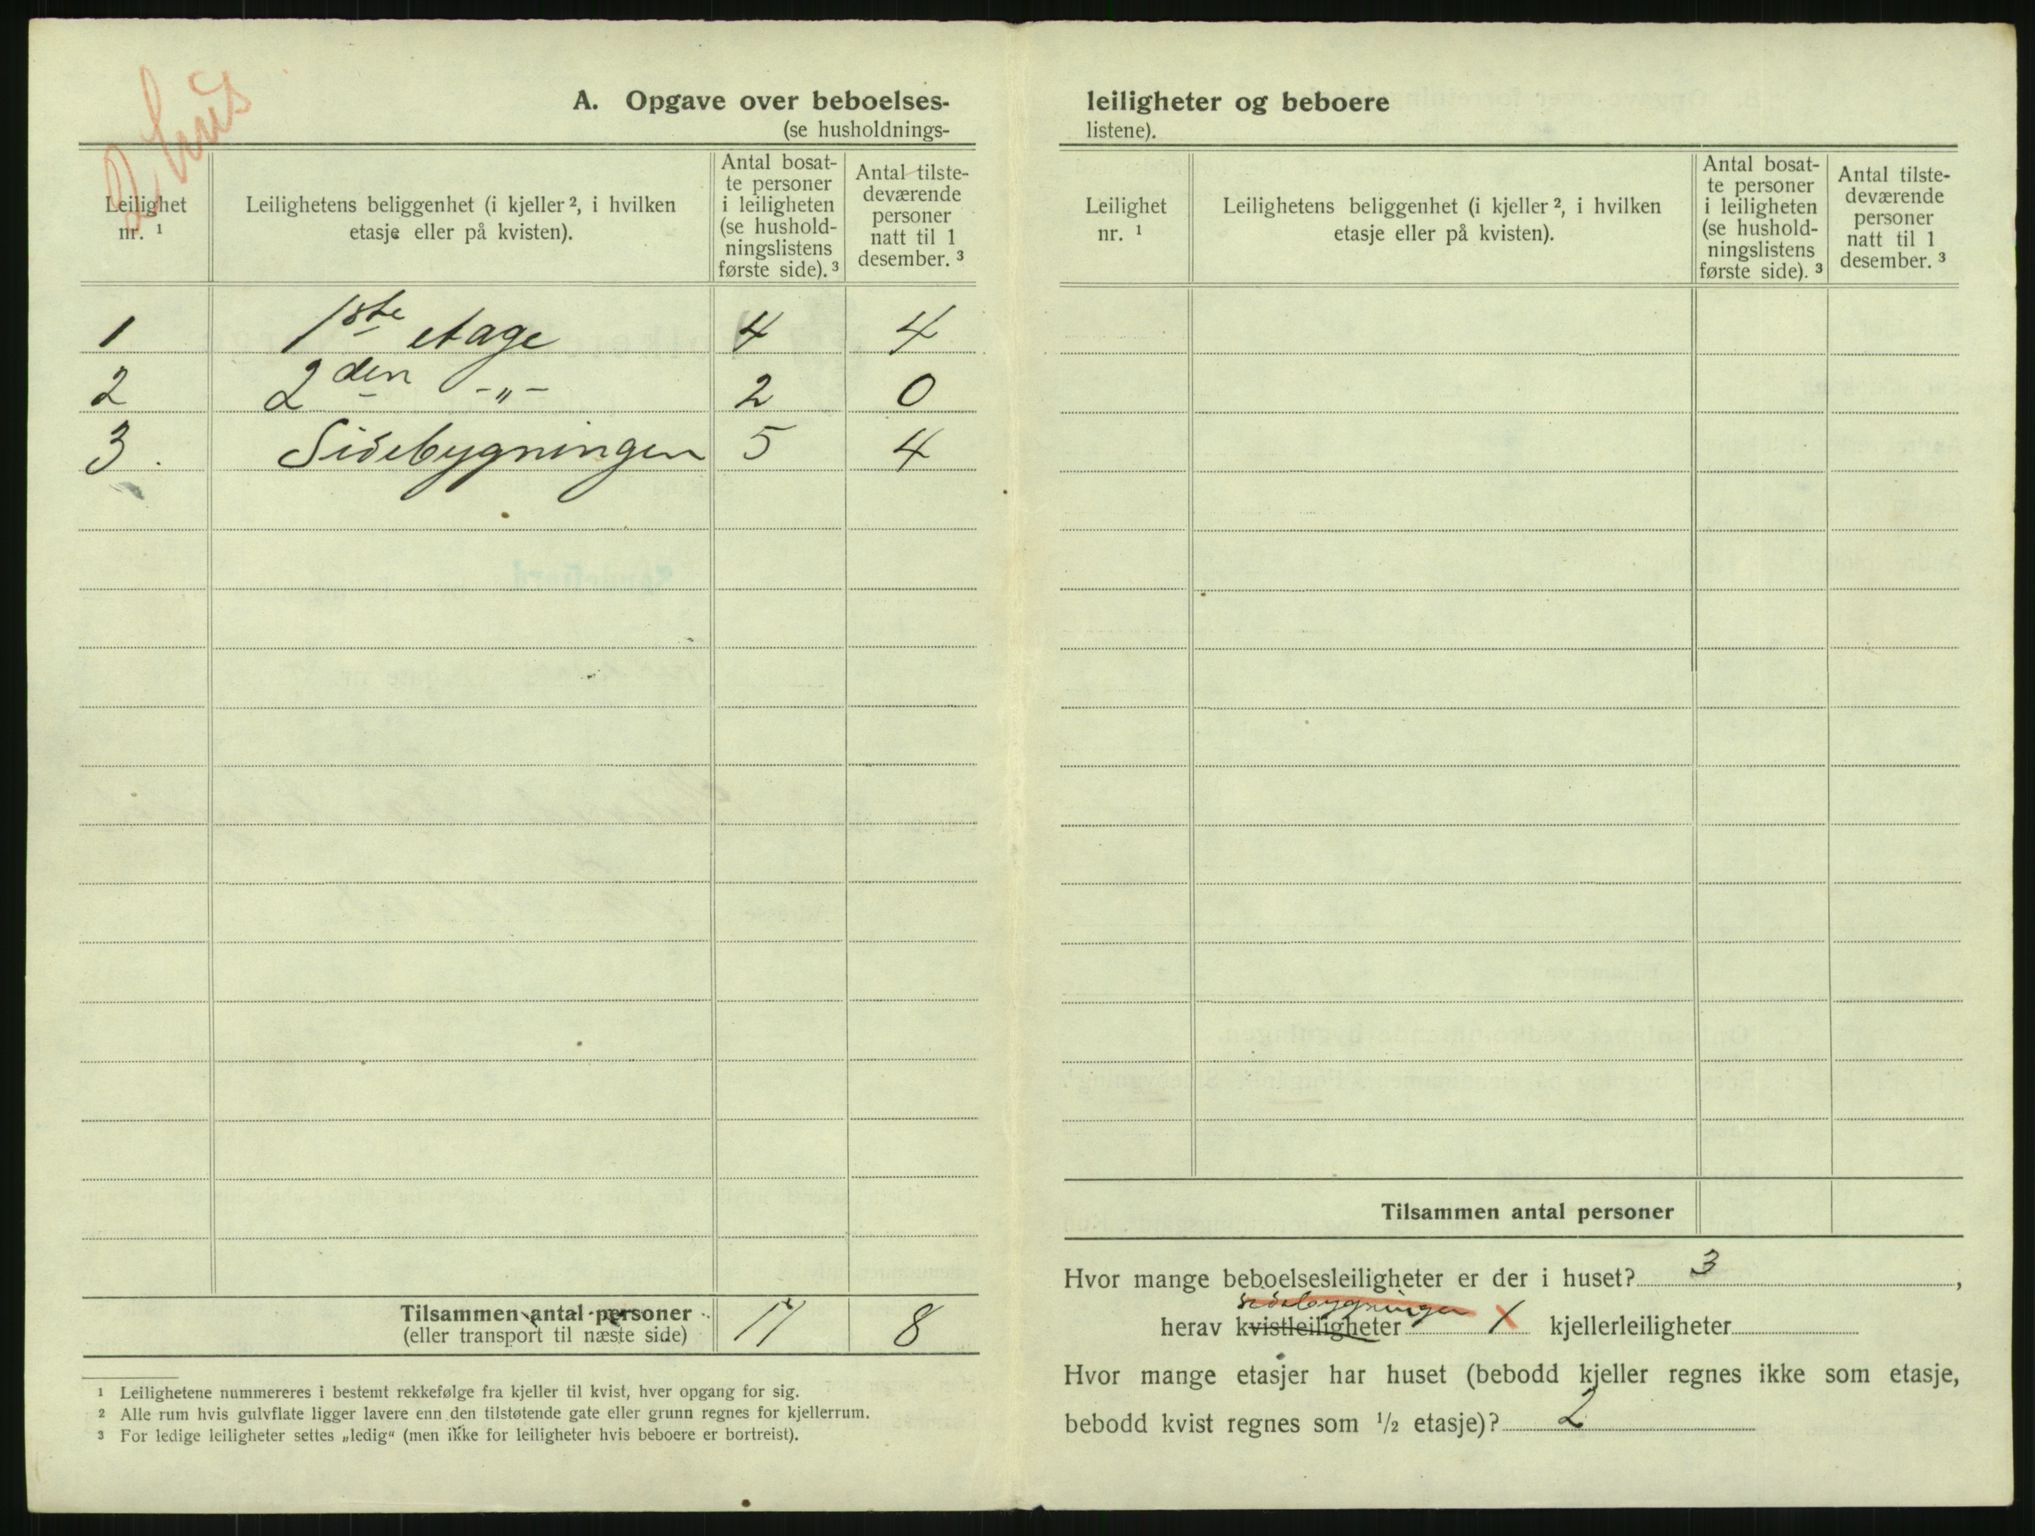 2 hus
A. Opgave over beboelses-
(se husholdnings-
Leilighet nr. ¹
Leilighetens beliggenhet (i kjeller ², i hvilken etasje eller på kvisten).
Antal bosat-
te personer
i leiligheten
(se hushold-
ningslistens
første side). ³
Antal tilste-
deværende
personer
natt til 1
desember. ³
1 1ste etage 4 4
2 2den -„- 2 0
3. Sidebygningen 5 4
Tilsammen antal personer
(eller transport til næste side) 11 8
¹ Leilighetene nummereres i bestemt rekkefølge fra kjeller til kvist, hver opgang for sig.
² Alle rum hvis gulvflate ligger lavere enn den tilstøtende gate eller grunn regnes for kjellerrum.
³ For ledige leiligheter settes „ledig" (men ikke for leiligheter hvis beboere er bortreist).
leiligheter og beboere
listene).
Leilighet nr. ¹
Leilighetens beliggenhet (i kjeller ², i hvilken etasje eller på kvisten).
Antal bosat-
te personer
i leiligheten
(se hushold-
ningslistens
første side). ³
Antal tilste-
deværende
personer
natt til 1
desember. ³
Tilsammen antal personer
Hvor mange beboelsesleiligheter er der i huset? 3,
sidebygningen
herav kvistleiligheter 1 kjellerleiligheter
Hvor mange etasjer har huset (bebodd kjeller regnes ikke som etasje,
bebodd kvist regnes som ½ etasje)? 2